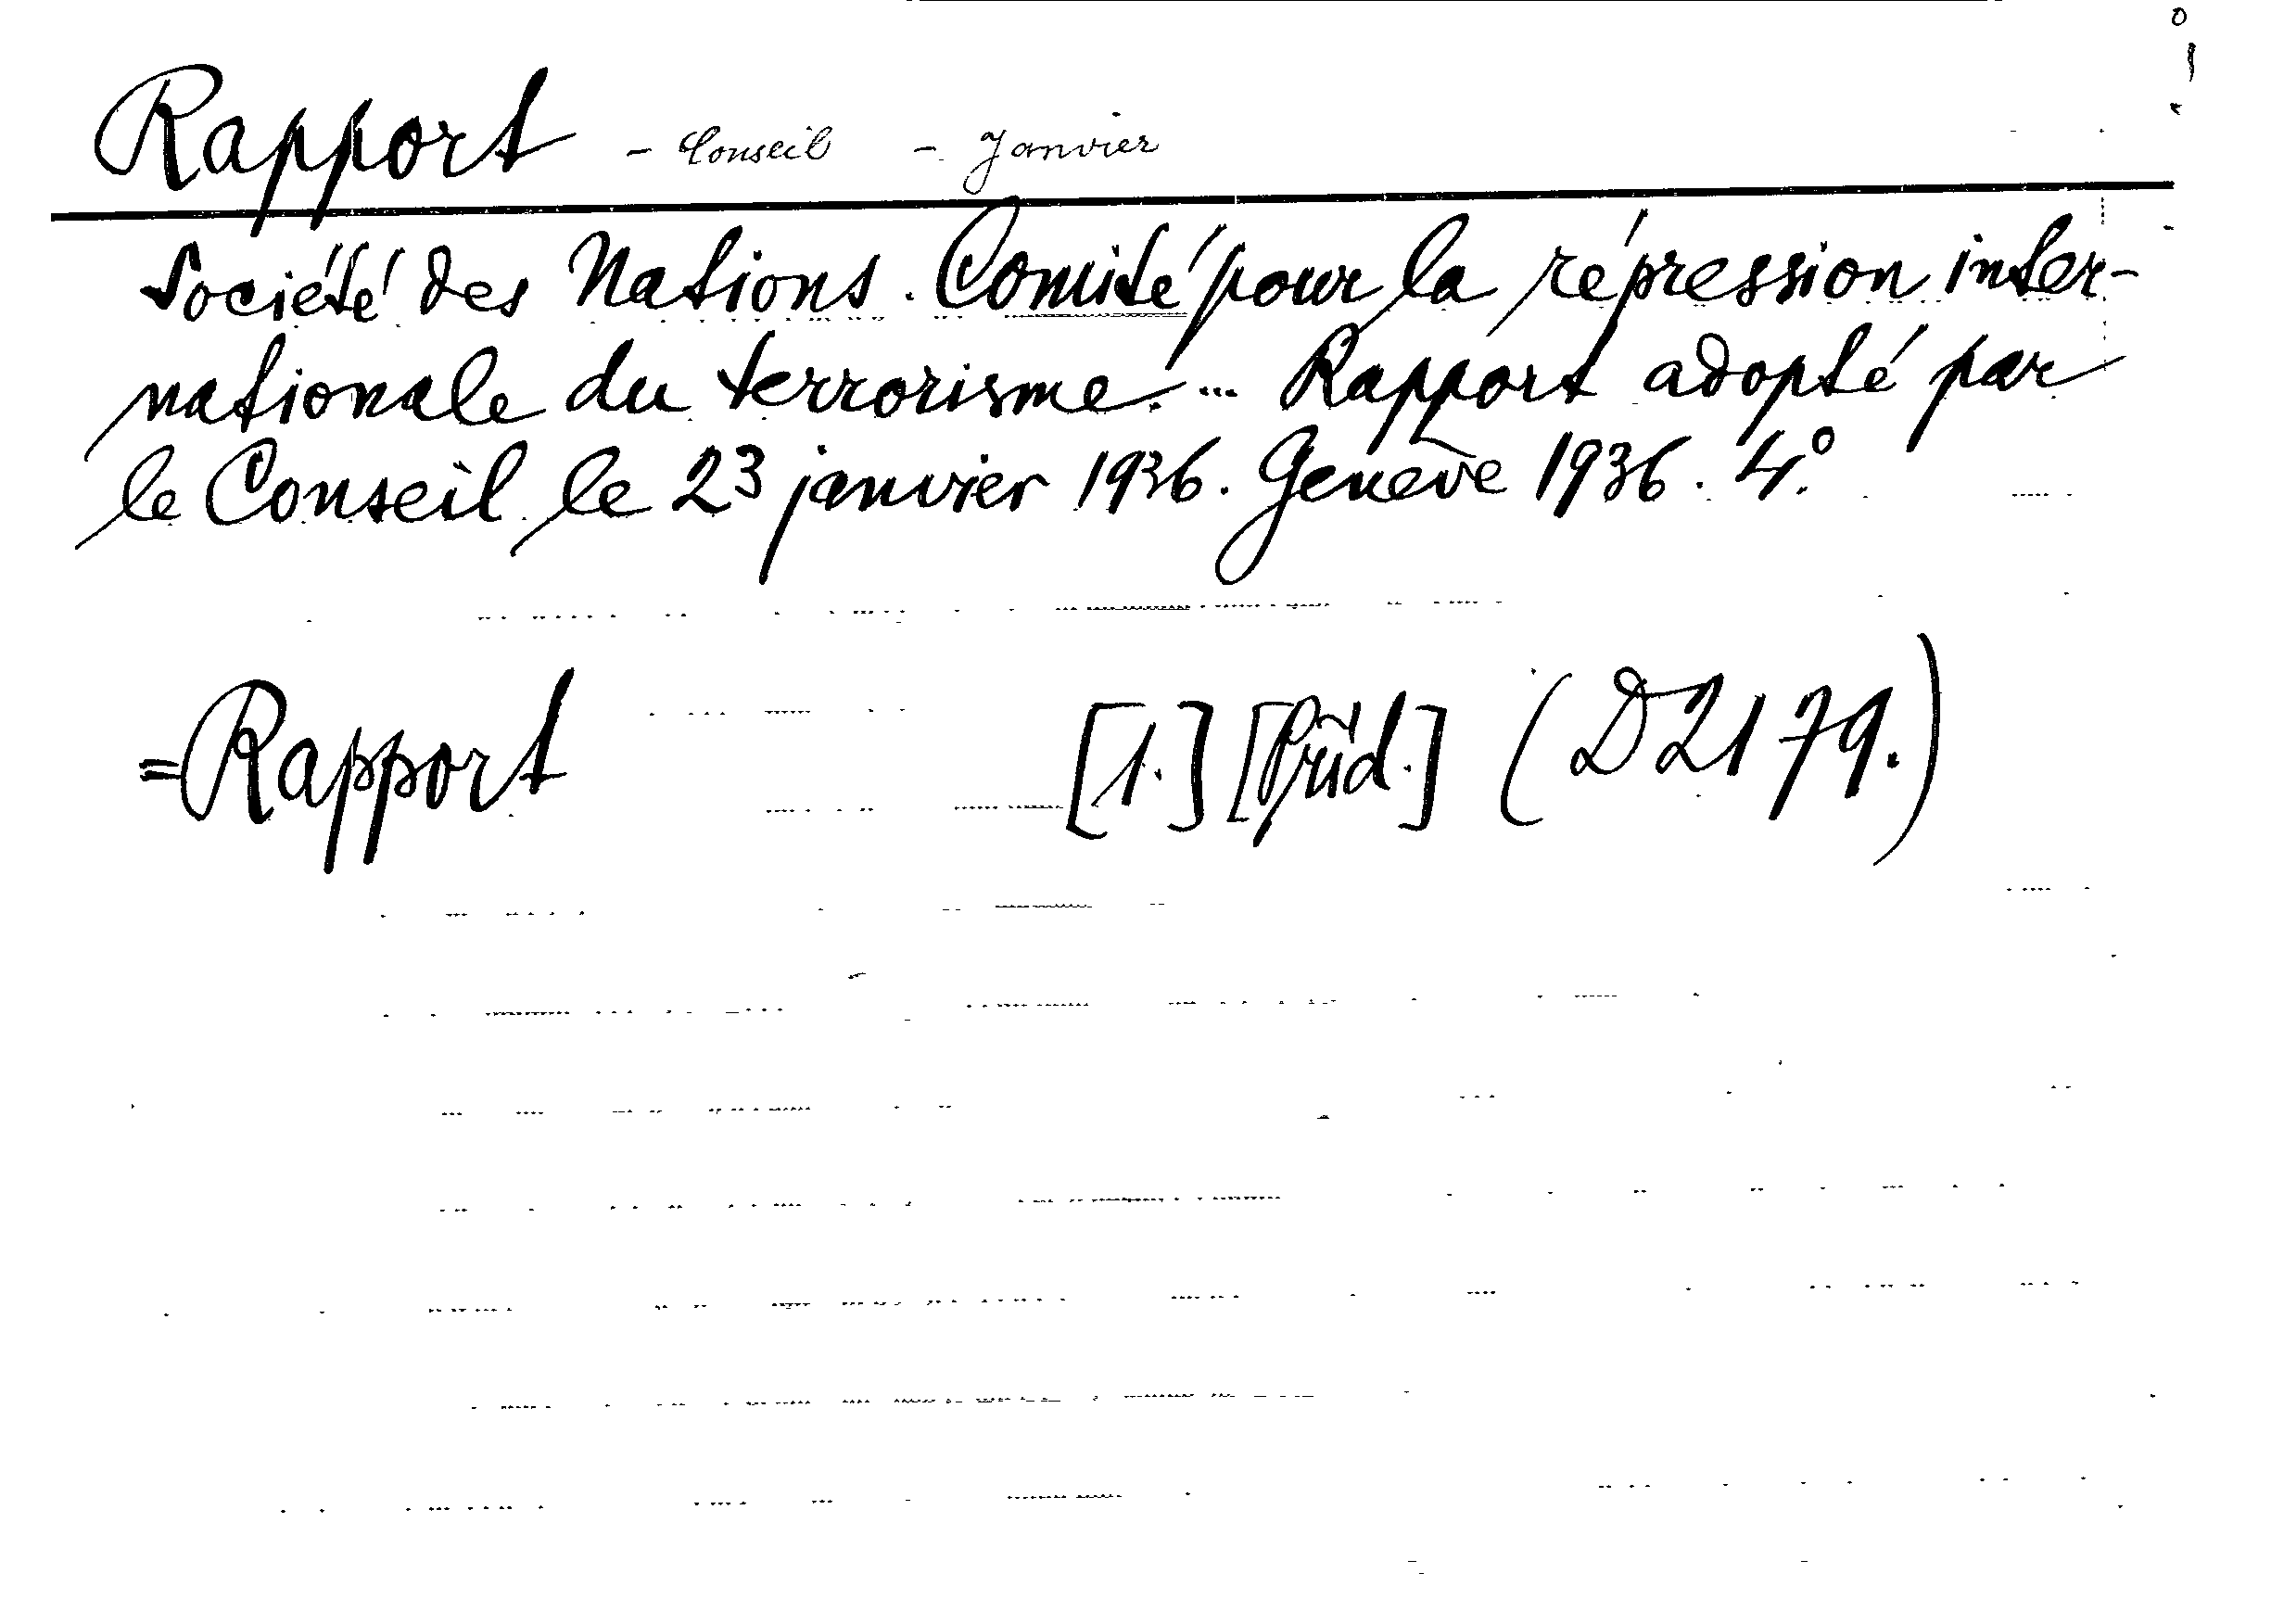 Rapport - Conseil - Janvier
Société des Nations. Comité pour la répression inter-
nationale du terrorisme. ... Rapport adopté par
le Conseil le 23 janvier 1936. Genève 1936. 4.°
=Rapport [1.] [Präd.] (D2179.)